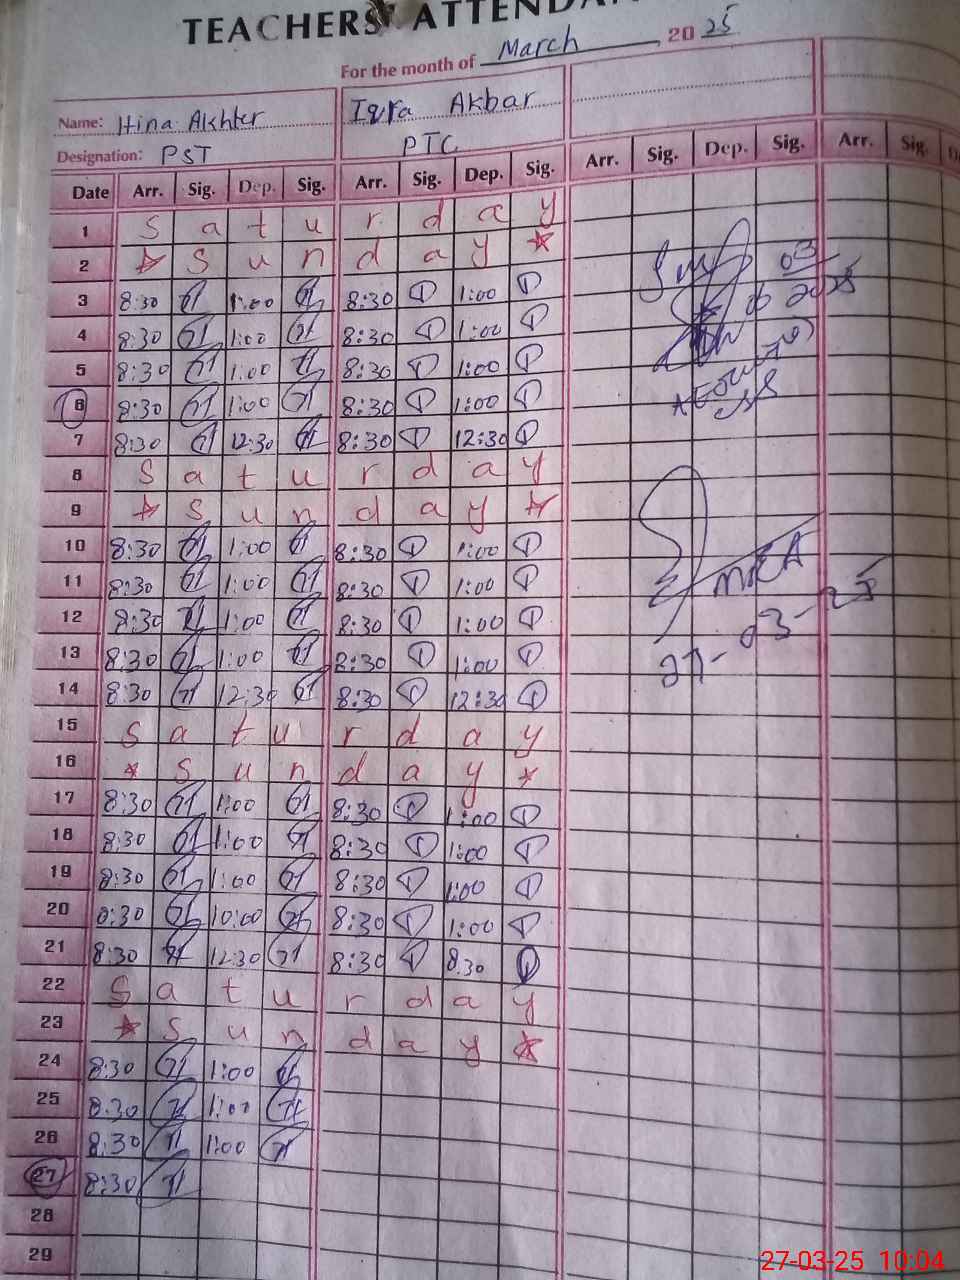 TEACHERS' ATTENDAN
For the month of March 2025
Name: Hina Akhter Iqra Akbar
Designation: PST PTC
Date Arr. Sig. Dep. Sig. Arr. Sig. Dep. Sig. Arr. Sig. Dep. Sig. Arr. Sig.
1 S a t u r d a y
2 S u n d a y
3 8:30 1:00 8:30 1:00
4 8:30 1:00 8:30 1:00
5 8:30 1:00 8:30 1:00
6 8:30 1:00 8:30 1:00
7 8:30 12:30 8:30 12:30
8 S a t u r d a y
9 S u n d a y
10 8:30 1:00 8:30 1:00
11 8:30 1:00 8:30 1:00
12 8:30 1:00 8:30 1:00
13 8:30 1:00 8:30 1:00
14 8:30 12:30 8:30 12:30
15 S a t u r d a y
16 S u n d a y
17 8:30 1:00 8:30 1:00
18 8:30 1:00 8:30 1:00
19 8:30 1:00 8:30 1:00
20 8:30 10:00 8:30 1:00
21 8:30 12:30 8:30 8.30
22 S a t u r d a y
23 S u n d a y
24 8:30 1:00
25 8.30 1:00
26 8:30 1:00
27 8:30
28
29
03
2025
MEA
27-03-25
27-03-25 10:04